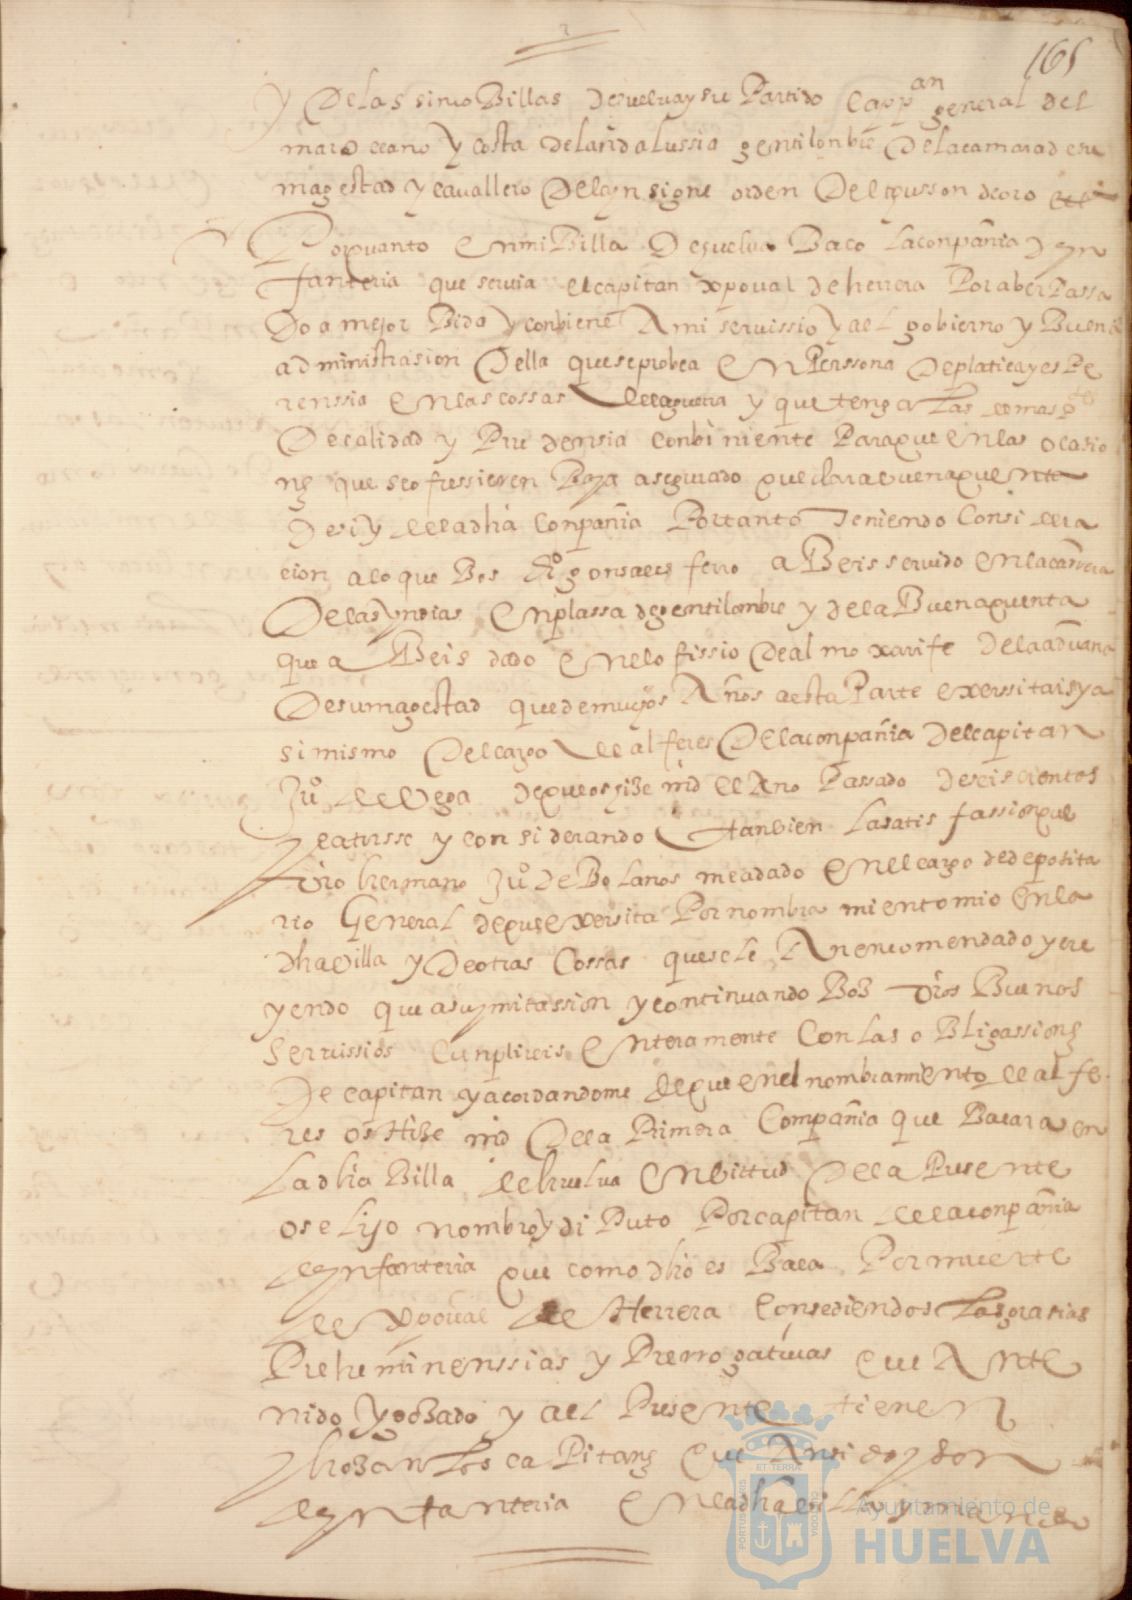 165
Y Delas sinco Billas deguelua y su Partido Cappan general del
mar occano Y costa del andalussia gentilonbre de la camara de su
magestad y cauallero de la ynsigne orden Del tusson de oro
Porquanto en mi Billa Deguelua Baco la conpañia de yn
fanteria que seruia el capitan xpoual de herrera Por aber Passa
do a mejor Bida y conbiene A mi seruissio y al gobierno y Buena
administrasion Della que se probea en Perssona de platica y espe
renssia en las cossas de la guerra y que tenga las demas ptes
De calidad y Prudensia conbiniente Para que en las ocasio
nes que se ofressieren Baya asegurado que dara buena quenta
De si y de la dha Conpañia Por tanto Teniendo Considera
cion a lo que Bos Ro gonsales ferro aBeis seruido en la carrera
De las yndias en plassa de gentilombre y de la Buena quenta
que aBeis dado en el offissio de almoxarife de la aduana
De su magestad que de muchos Años a esta Parte exerssitais y a
si mismo del cargo de alferes De la conpañia Del capitan
Juo de Vega de que os hise md el Año Passado de seiscientos
y catorsse y considerando tanbien la satisfassion que
vro hermano Juo de Bolaños me a dado en el cargo de deposita
rio General de que exersita Por nombramiento mio en la
dha villa y De otras Cossas que se le An encomendado y cre
yendo que a su ymitassion y continuando Bos vros Buenos
seruissios cunplireis enteramente Con las oBligassiones
De capitan y acordandome de que en el nombramiento de alfe
res os Hise md De la Primera Compañia que Bacara en
La dha Billa de huelua en birtud De la Presente
os elijo nombro y diPuto Por capitan de la conpañia
de ynfanteria que como dho es Baca Por muerte
de xpoual de Herrera Consediendoos las grasias
Preheminenssias y Prerrogatiuas que Ante
nido y gosado y al Presente tienen
y gosan Los caPitanes que An sido y son
de ynfanteria en la dha villa
Ayuntamiento de
HUELVA
PORTUS MARIS
ET TERRAE
CUSTODIA